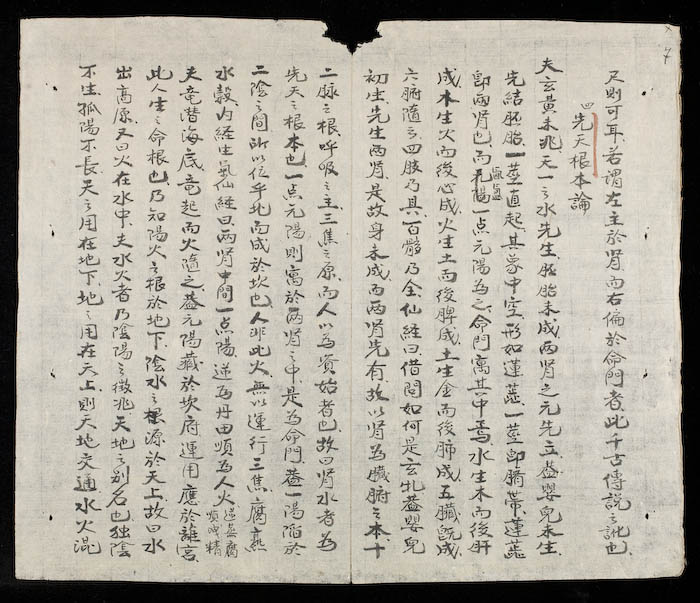 尺則可耳若謂左主於肾而右偏於命門者此千古傳說之訛也
四先天根本論
夫玄黄未兆天一之水先生胚胎未成两肾之元先立盖嬰兒未生
先結胚胎一莖直起其象中空形如蓮蕊一莖即臍帶蓮蕊
即两肾也而孔陽一点元陽為之命門寓其中焉水生木而後肝
成木生火而後心成火生土而後脾成土生金而後肺成五臟既成
六腑隨之四肢乃具百骸乃全仙經曰借問如何是玄牝盖嬰兒
初生先生两肾是故身未成而两肾先有故以肾為臟腑之本十
二脉之根呼吸之主三焦之原而人以為資始者也故曰肾水者為
先天之根本也一点元陽則寓於两肾之中是為命門盖一陽陷於
二陰之間所以位乎北而成於坎也人非此火無以運行三焦腐熟
水穀内経生氣仙經曰两肾中間一点陽逆為丹田順為人火
夫竜潜海底竜起而火隨之盖元陽藏於坎府運用應於離宮
此人生之命根也乃知陽火之根於地下陰水之根源於天上故曰水
出高原又曰火在水中夫水火者乃陰陽之徵兆天地之别名也独陰
不生孤陽不長天之用在地下地之用在天上則天地交通水火混